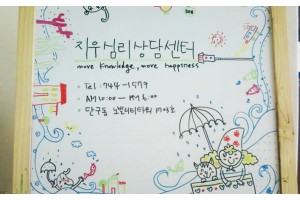 지우심리상담센터
more knowledge, more happiness
• Tel : 744-1579
• AM 10:00 – PM 6:00
• 단구동 노블리티타워